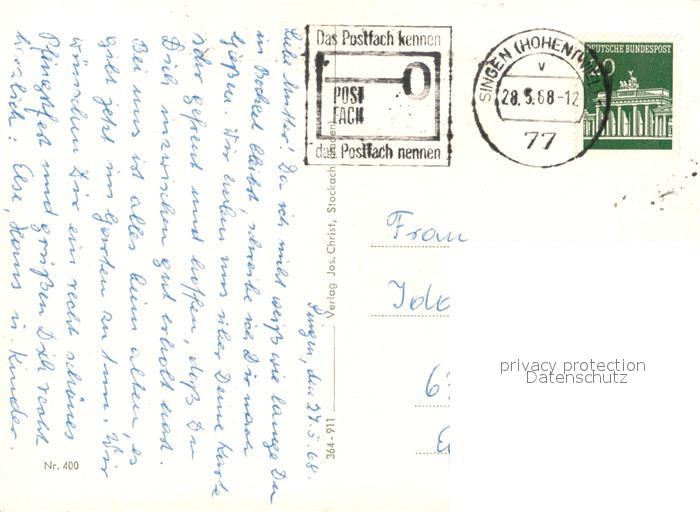 Das Postfach kennen
POST
FACH
das Postfach nennen
SINGEN (HOHENTWIEL)
v
28.5.68-12
77
DEUTSCHE BUNDESPOST
Frau
Ida
6
privacy protection
Datenschutz
Verlag Jos. Christ, Stockach/Baden
364-911
Nr. 400
Singen, den 27.5.68.
Liebe Mutter! Da ich nicht weiß wie lange Du
in Bocklet bleibst, schreibe ich Dir nach
Gießen. Wir haben uns über Deine Karte
sehr gefreut und hoffen, daß Du
Dich inzwischen gut erholt hast.
Bei uns ist alles beim alten, es
gibt jetzt im Garten zu tun. Wir
wünschen Dir ein recht schönes
Pfingstfest und grüßen Dich recht
herzlich: Else, Hans u. Kinder.